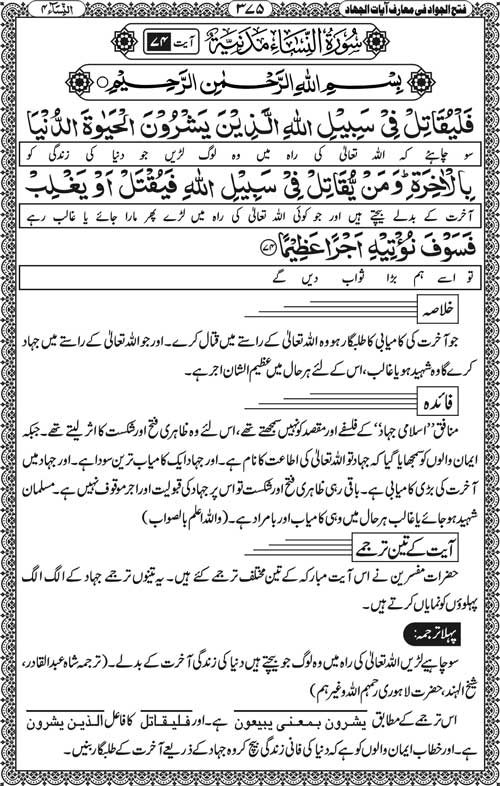 فتح الجواد فی معارف آیات الجهاد
۳۷۵
النسآء ۴
سُوْرَةُ النِّسَاءِ مَدَنِيَّةٌ
آیت ۷۴
بِسْمِ اللهِ الرَّحْمٰنِ الرَّحِيْمِ
فَلْيُقَاتِلْ فِيْ سَبِيْلِ اللهِ الَّذِيْنَ يَشْرُوْنَ الْحَيٰوةَ الدُّنْيَا
سو چاہئے کہ اللہ تعالیٰ کی راہ میں وہ لوگ لڑیں جو دنیا کی زندگی کو
بِالْاٰخِرَةِ ۚ وَمَنْ يُّقَاتِلْ فِيْ سَبِيْلِ اللهِ فَيُقْتَلْ اَوْ يَغْلِبْ
آخرت کے بدلے بیچتے ہیں اور جو کوئی اللہ تعالیٰ کی راہ میں لڑے پھر مارا جائے یا غالب رہے
فَسَوْفَ نُؤْتِيْهِ اَجْرًا عَظِيْمًا ﴿۷۴﴾
تو اسے ہم بڑا ثواب دیں گے
خلاصہ
جو آخرت کی کامیابی کا طلبگار ہو وہ اللہ تعالیٰ کے راستے میں قتال کرے۔ اور جو اللہ تعالیٰ کے راستے میں جہاد
کرے گا وہ شہید ہو یا غالب، اس کے لئے ہر حال میں عظیم الشان اجر ہے۔
فائدہ
منافق ’’اسلامی جہاد‘‘ کے فلسفے اور مقصد کو نہیں سمجھتے تھے، اس لئے وہ ظاہری فتح اور شکست کا اثر لیتے تھے۔ جبکہ
ایمان والوں کو سمجھایا گیا کہ جہاد تو اللہ تعالیٰ کی اطاعت کا نام ہے۔ اور جہاد ایک کامیاب ترین سودا ہے۔ اور جہاد میں
آخرت کی بڑی کامیابی ہے۔ باقی رہی ظاہری فتح اور شکست تو اس پر جہاد کی قبولیت اور اجر موقوف نہیں ہے۔ مسلمان
شہید ہو جائے یا غالب ہر حال میں وہی کامیاب اور بامراد ہے۔ (واللہ اعلم بالصواب)
آیت کے تین ترجمے
حضرات مفسرین نے اس آیت مبارکہ کے تین مختلف ترجمے کئے ہیں۔ یہ تینوں ترجمے جہاد کے الگ الگ
پہلوؤں کو نمایاں کرتے ہیں۔
پہلا ترجمہ:
سو چاہیے لڑیں اللہ تعالیٰ کی راہ میں وہ لوگ جو بیچتے ہیں دنیا کی زندگی آخرت کے بدلے۔ (ترجمہ شاہ عبدالقادر،
شیخ الہند، حضرت لاہوری رحمہم اللہ وغیرہم)
اس ترجمے کے مطابق یشرون بمعنی یبیعون ہے۔ اور فلیقاتل کا فاعل الذین یشرون
ہے۔ اور خطاب ایمان والوں کو ہے کہ دنیا کی فانی زندگی بیچ کر وہ جہاد کے ذریعے آخرت کے طلبگار بنیں۔